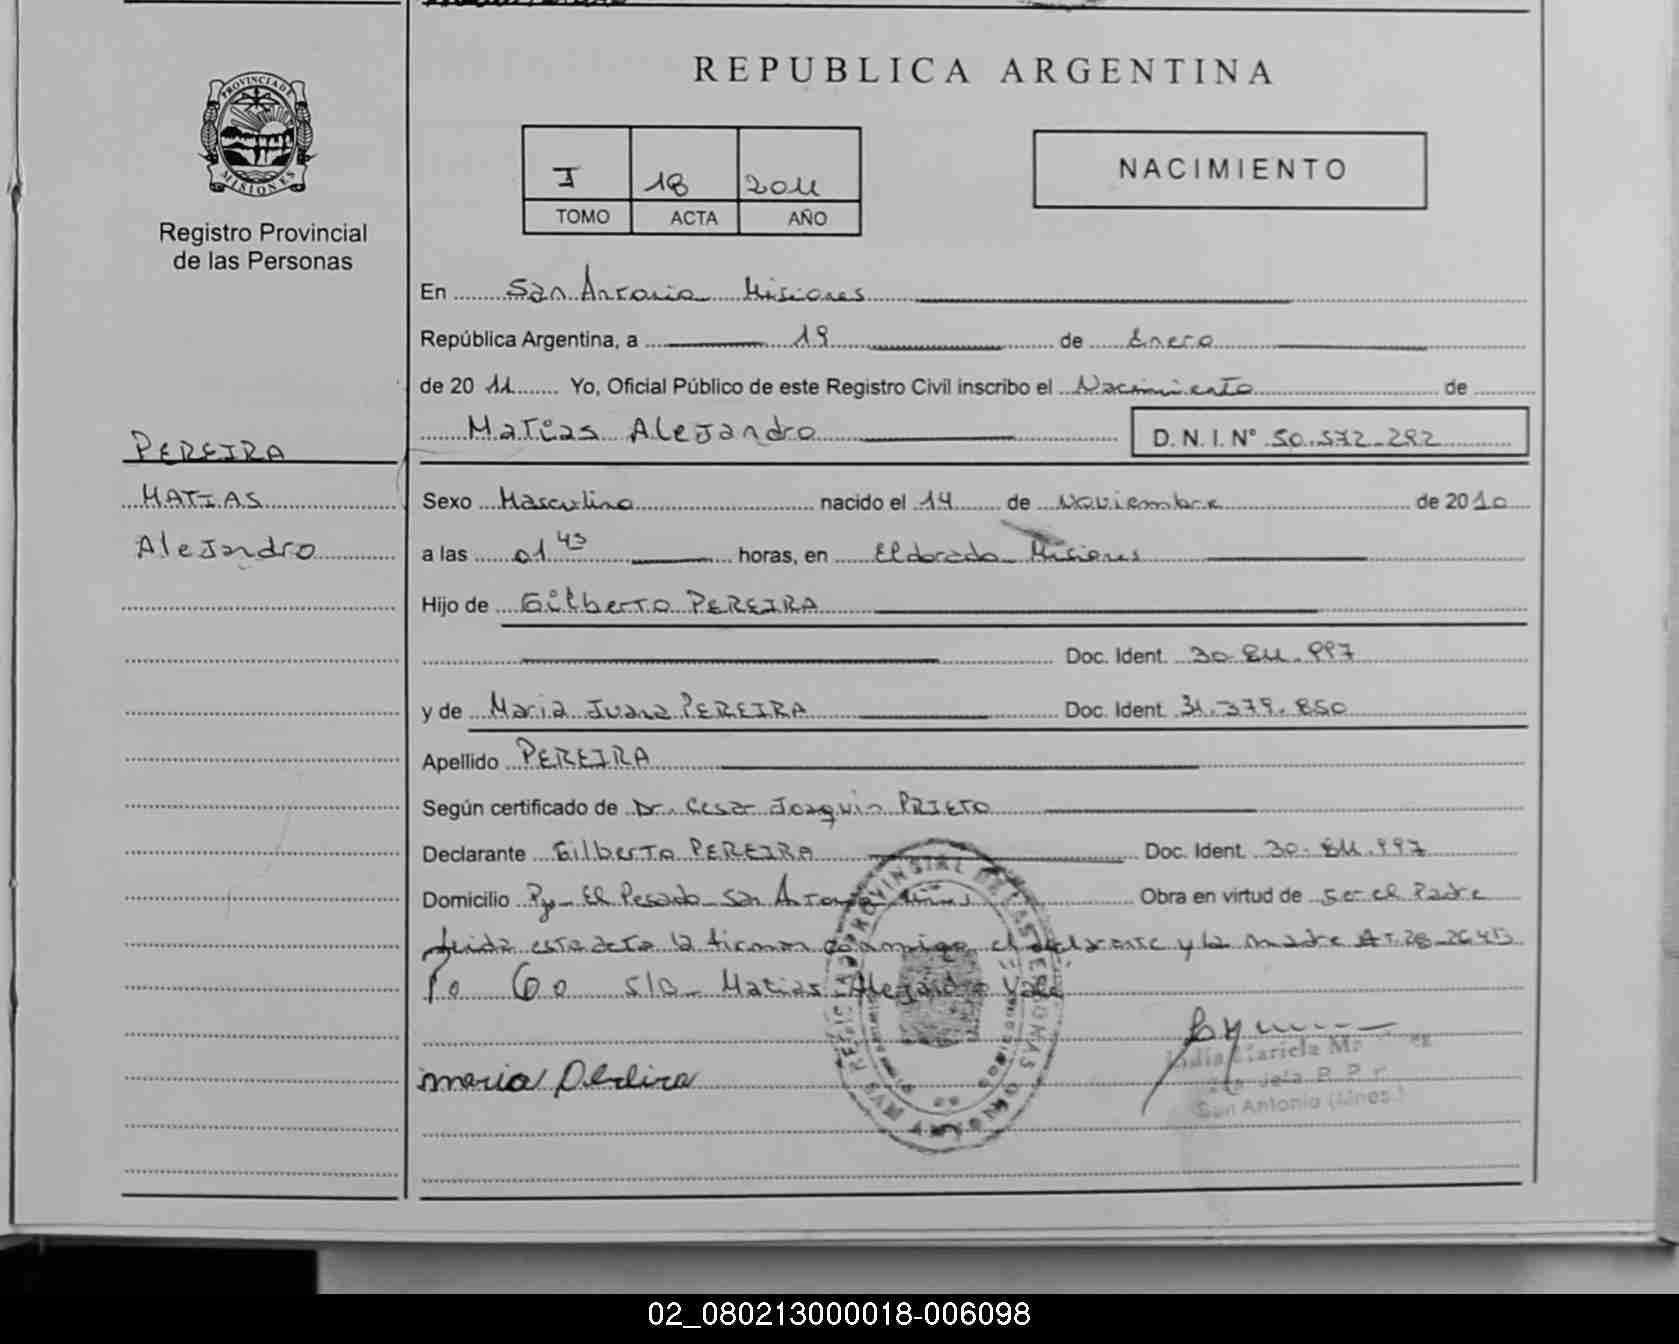 REPUBLICA ARGENTINA
PROVINCIA DE
MISIONES
Registro Provincial
de las Personas
I 18 2011
TOMO ACTA AÑO
NACIMIENTO
En San Antonio Misiones
República Argentina, a 19 de Enero
de 20 11 Yo, Oficial Público de este Registro Civil inscribo el Nacimiento de
Matias Alejandro D. N. I. N° 50.572.282
PEREIRA
MATIAS
Alejandro
Sexo Masculino nacido el 14 de Noviembre de 2010
a las 01 45 horas, en Eldorado Misiones
Hijo de Gilberto PEREIRA
Doc. Ident. 30.811.997
y de Maria Juana PEREIRA Doc. Ident. 31.379.850
Apellido PEREIRA
Según certificado de Dr. Cesar Joaquin PRIETO
Declarante Gilberto PEREIRA Doc. Ident. 30.811.997
Domicilio Pje El Pesado San Antonio Mnes Obra en virtud de ser el Padre
leida esta acta la firman conmigo el declarante y la madre
S/R Matias Alejandro Vale
maria Pereira
San Antonio (Mnes.)
02_080213000018-006098